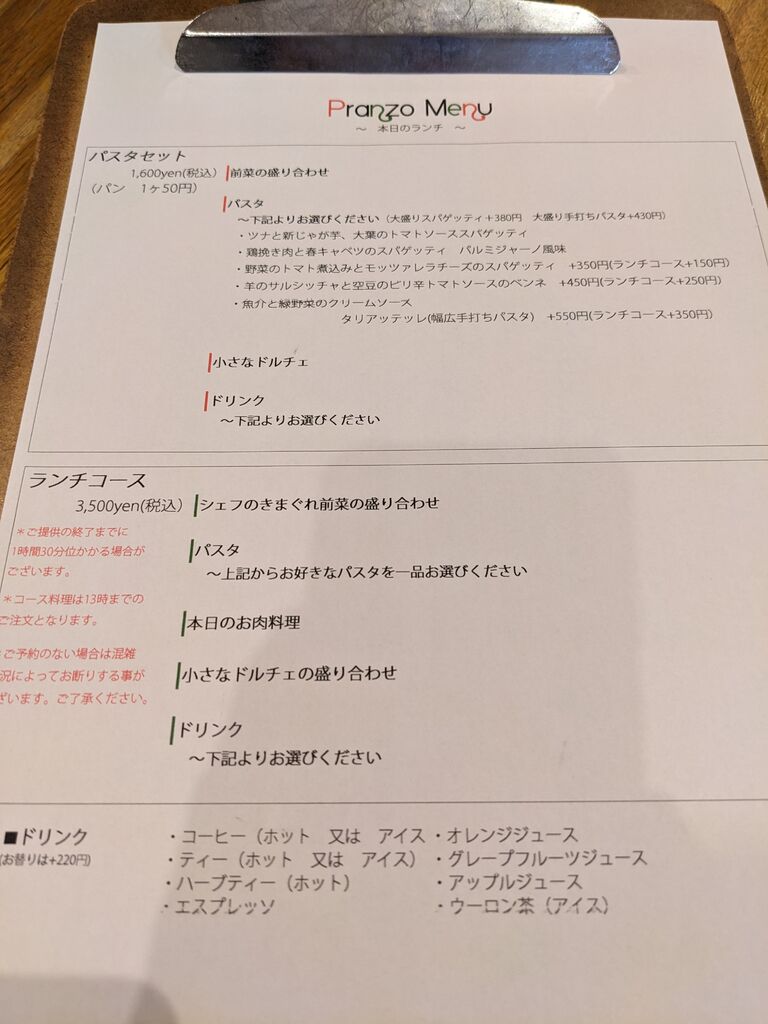 Pranzo Menu
～ 本日のランチ ～
パスタセット
1,600yen(税込)
(パン 1ヶ50円)
前菜の盛り合わせ
パスタ
～下記よりお選びください（大盛りスパゲッティ＋380円 大盛り手打ちパスタ+430円）
・ツナと新じゃが芋、大葉のトマトソーススパゲッティ
・鶏挽き肉と春キャベツのスパゲッティ パルミジャーノ風味
・野菜のトマト煮込みとモッツァレラチーズのスパゲッティ +350円(ランチコース+150円)
・羊のサルシッチャと空豆のピリ辛トマトソースのペンネ +450円(ランチコース+250円)
・魚介と緑野菜のクリームソース
タリアッテッレ(幅広手打ちパスタ) +550円(ランチコース+350円)
小さなドルチェ
ドリンク
～下記よりお選びください
ランチコース
3,500yen(税込)
＊ご提供の終了までに
1時間30分位かかる場合が
ございます。
＊コース料理は13時までの
ご注文となります。
ご予約のない場合は混雑
況によってお断りする事が
ざいます。ご了承ください。
シェフのきまぐれ前菜の盛り合わせ
パスタ
～上記からお好きなパスタを一品お選びください
本日のお肉料理
小さなドルチェの盛り合わせ
ドリンク
～下記よりお選びください
■ドリンク
(お替りは+220円)
・コーヒー（ホット 又は アイス
・ティー（ホット 又は アイス）
・ハーブティー（ホット）
・エスプレッソ
・オレンジジュース
・グレープフルーツジュース
・アップルジュース
・ウーロン茶（アイス）